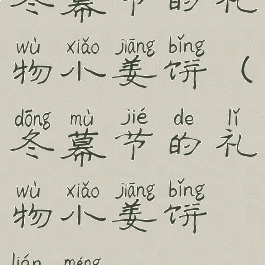 冬幕节的礼
wù xiǎo jiāng bǐng
物小姜饼（
dōng mù jié de lǐ
冬幕节的礼
wù xiǎo jiāng bǐng
物小姜饼
lián méng